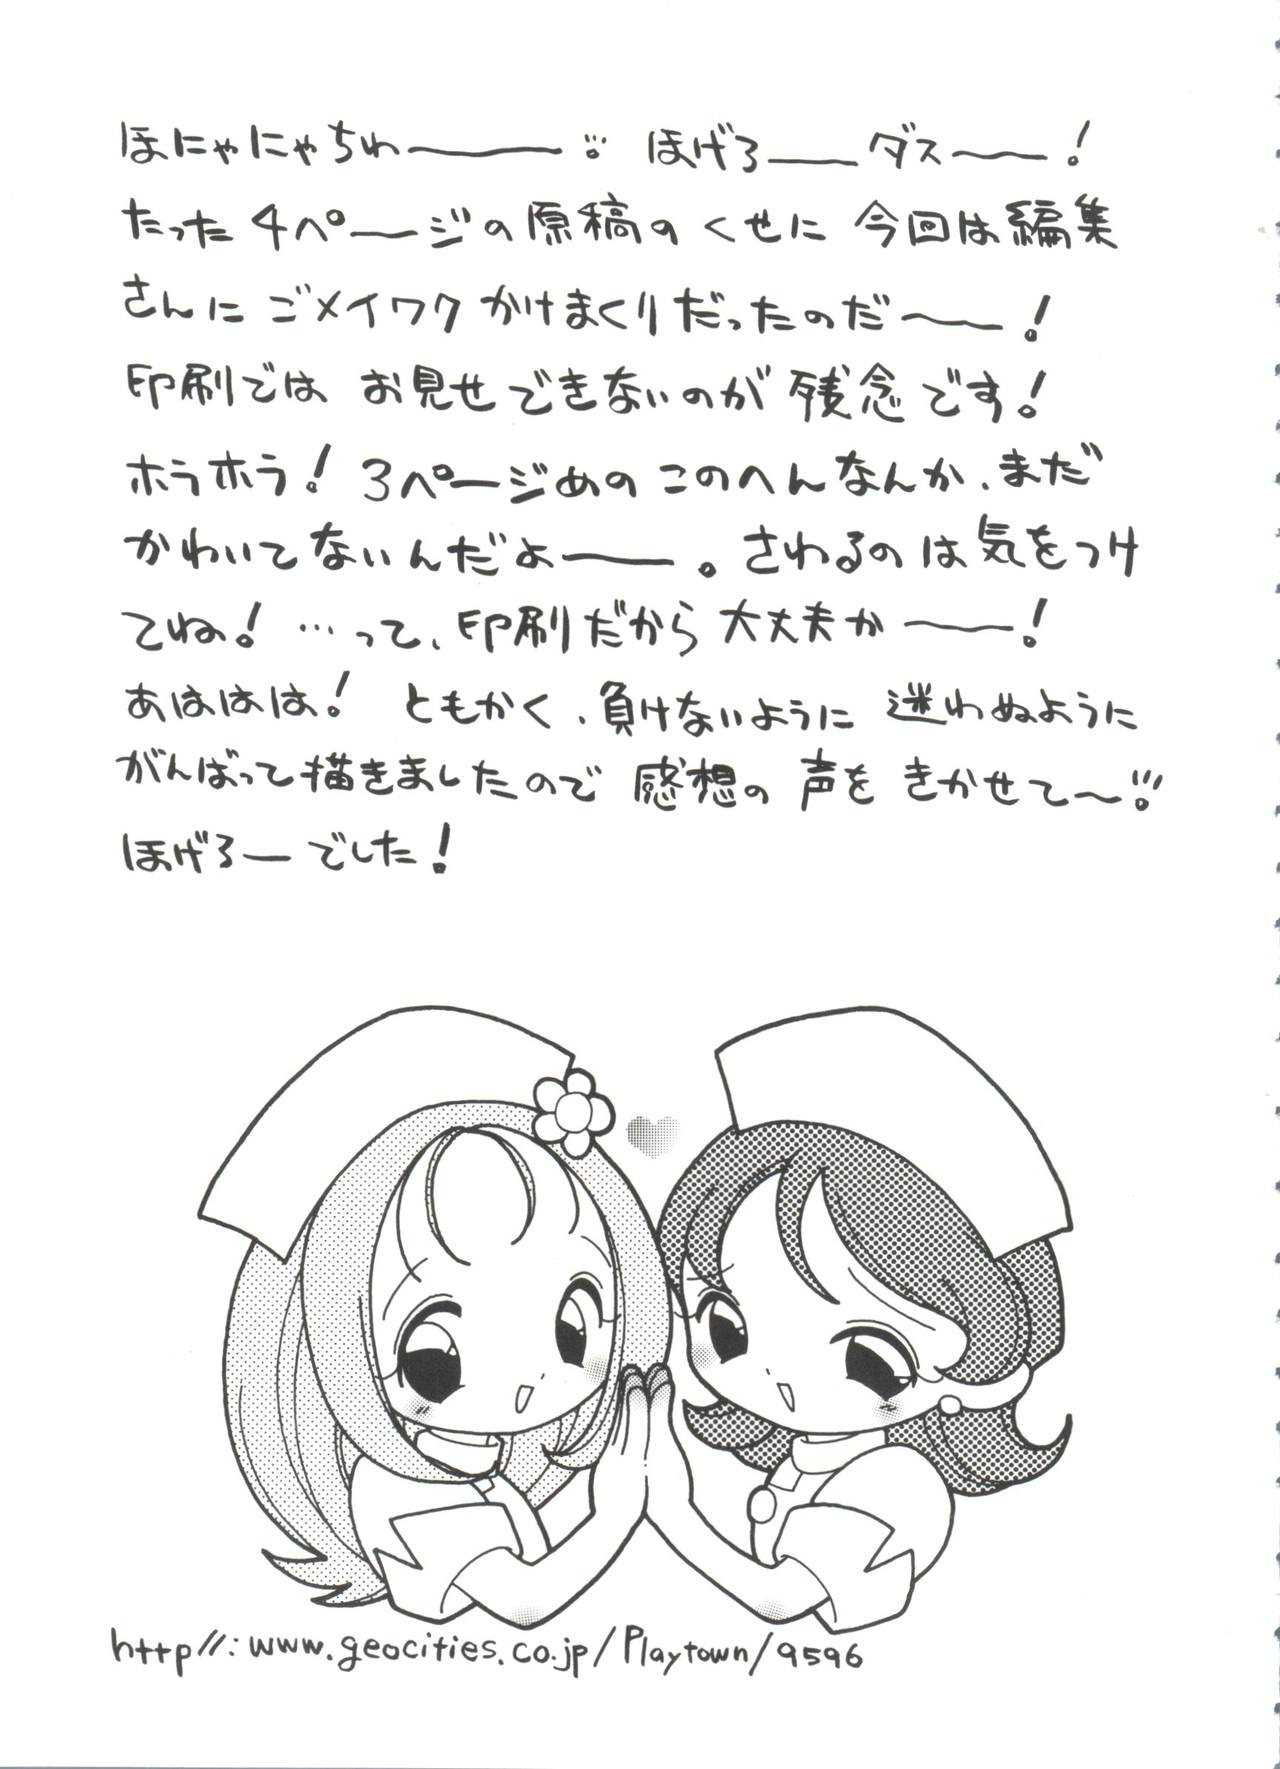 ほにゃにゃちわ――― ほげろ――ダス――!
たった4ページの原稿のくせに 今回は編集
さんに ごメイワク かけまくりだったのだ～～!
印刷では お見せできないのが 残念です!
ホラホラ! 3ページめの このへんなんか、まだ
かわいてないんだよ――。さわるのは気をつけ
てね! …って、印刷だから 大丈夫か――!
あははは! ともかく、負けないように 迷わぬように
がんばって描きましたので 感想の 声を きかせて～!!
ほげろー でした!
http//:www.geocities.co.jp/Playtown/9596